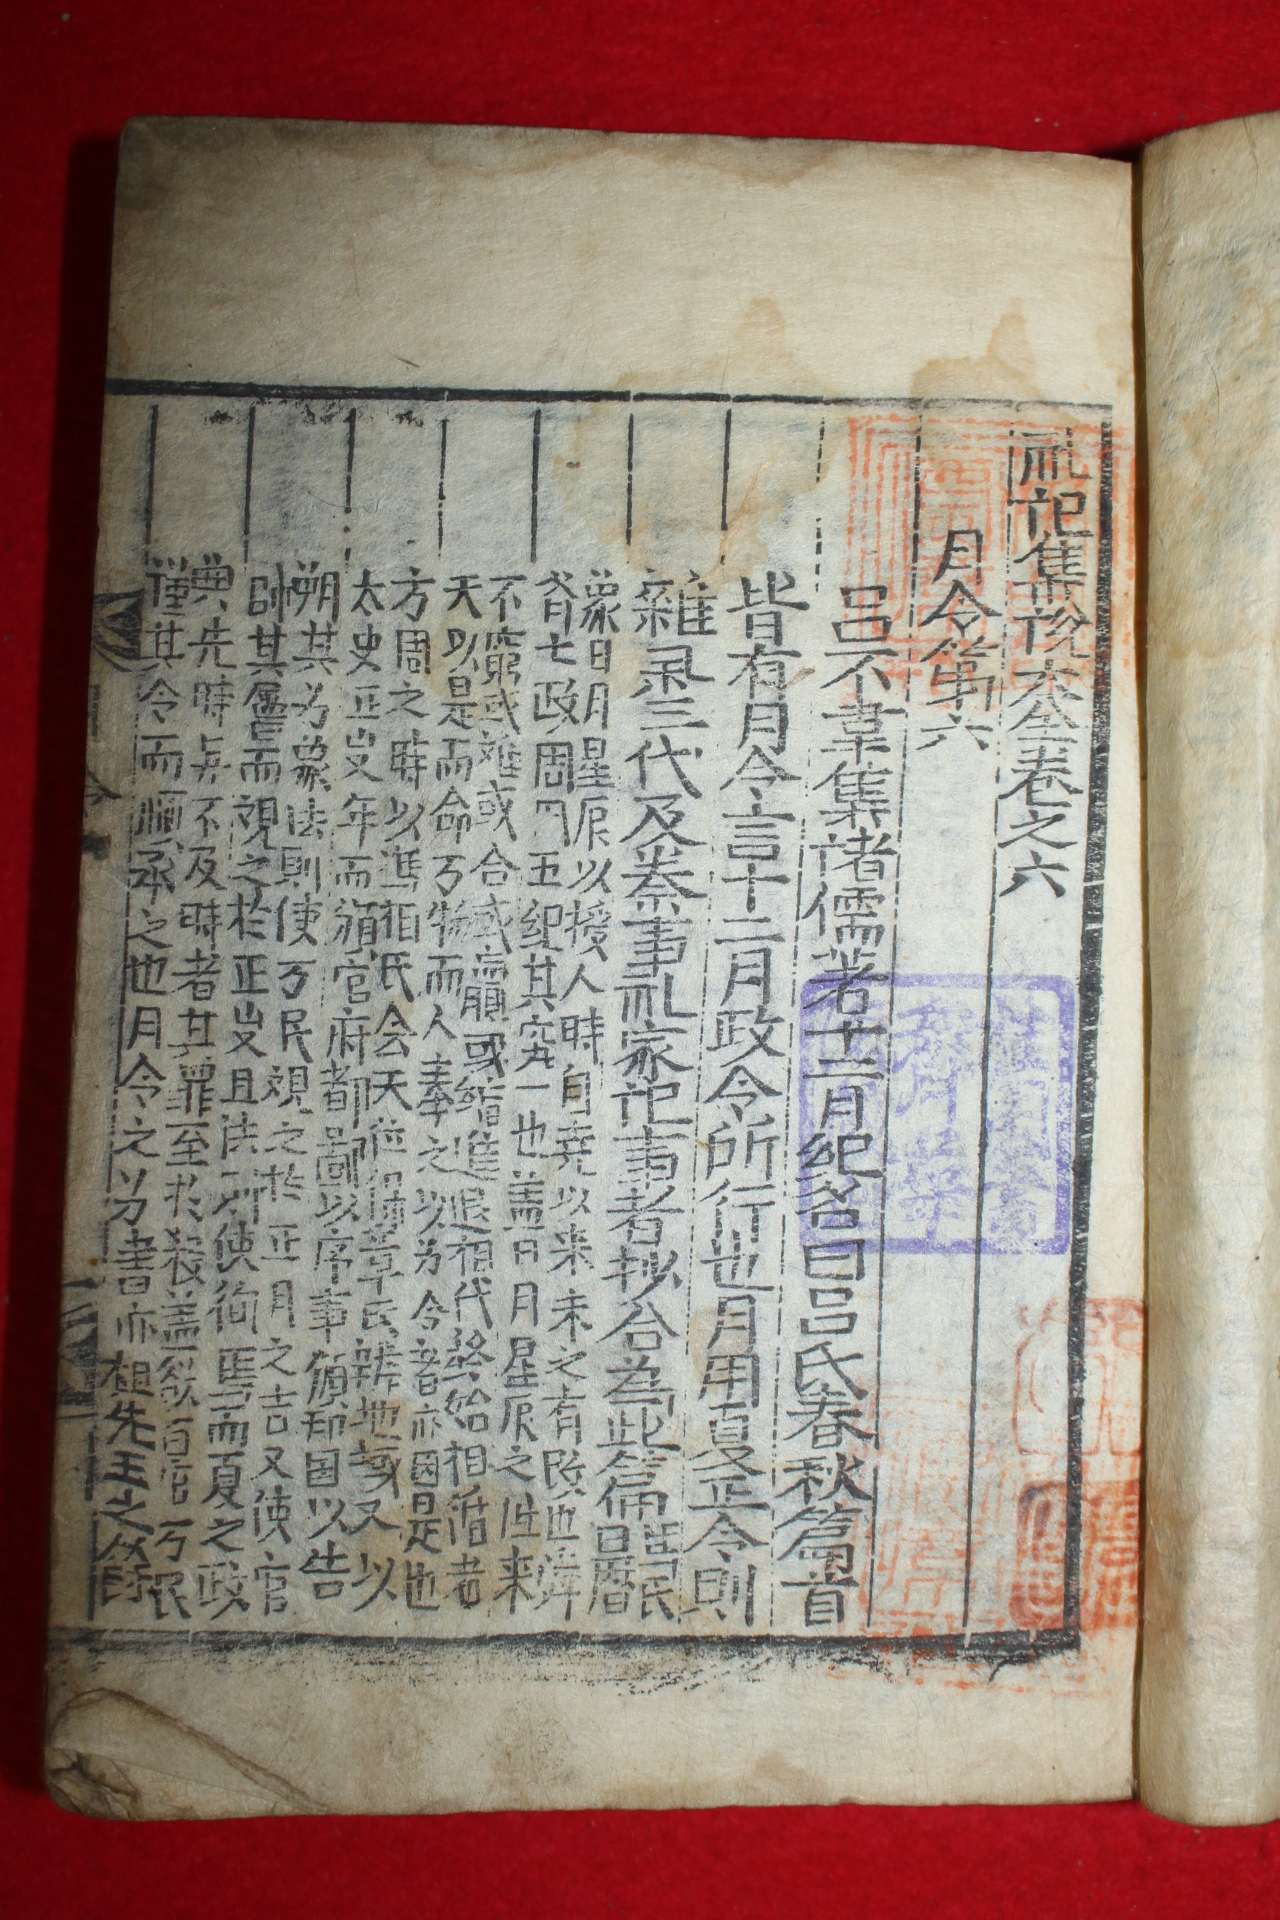 礼記集說大全卷之六
月令第六
呂不韋集諸儒著十二月紀名曰呂氏春秋篇首
皆有月令言十二月政令所行也月用夏正令則
雜录三代及秦事礼家記事者抄合為此篇
曰曆
象日月星辰以授人時自堯以来未之有改也舜
斉七政周叶五紀其究一也盖日月星辰之往来
不窮或離或合或贏或縮進退相代終始相循者
天以是而命万物而人奉之以为令者亦因是也
方周之時以馮相氏会天位保章氏辨地域又以
太史正歲年而頒官府都啚以序事頒却国以告
朔其为象法則使万民視之於正月之吉又使官
帥其属而視之於正歲且法则使徇焉而夏之政
典先時与不及時者其罪至於殺盖欲百官万民
謹其令而順承之也月令之为書亦祖先王之餘
月令